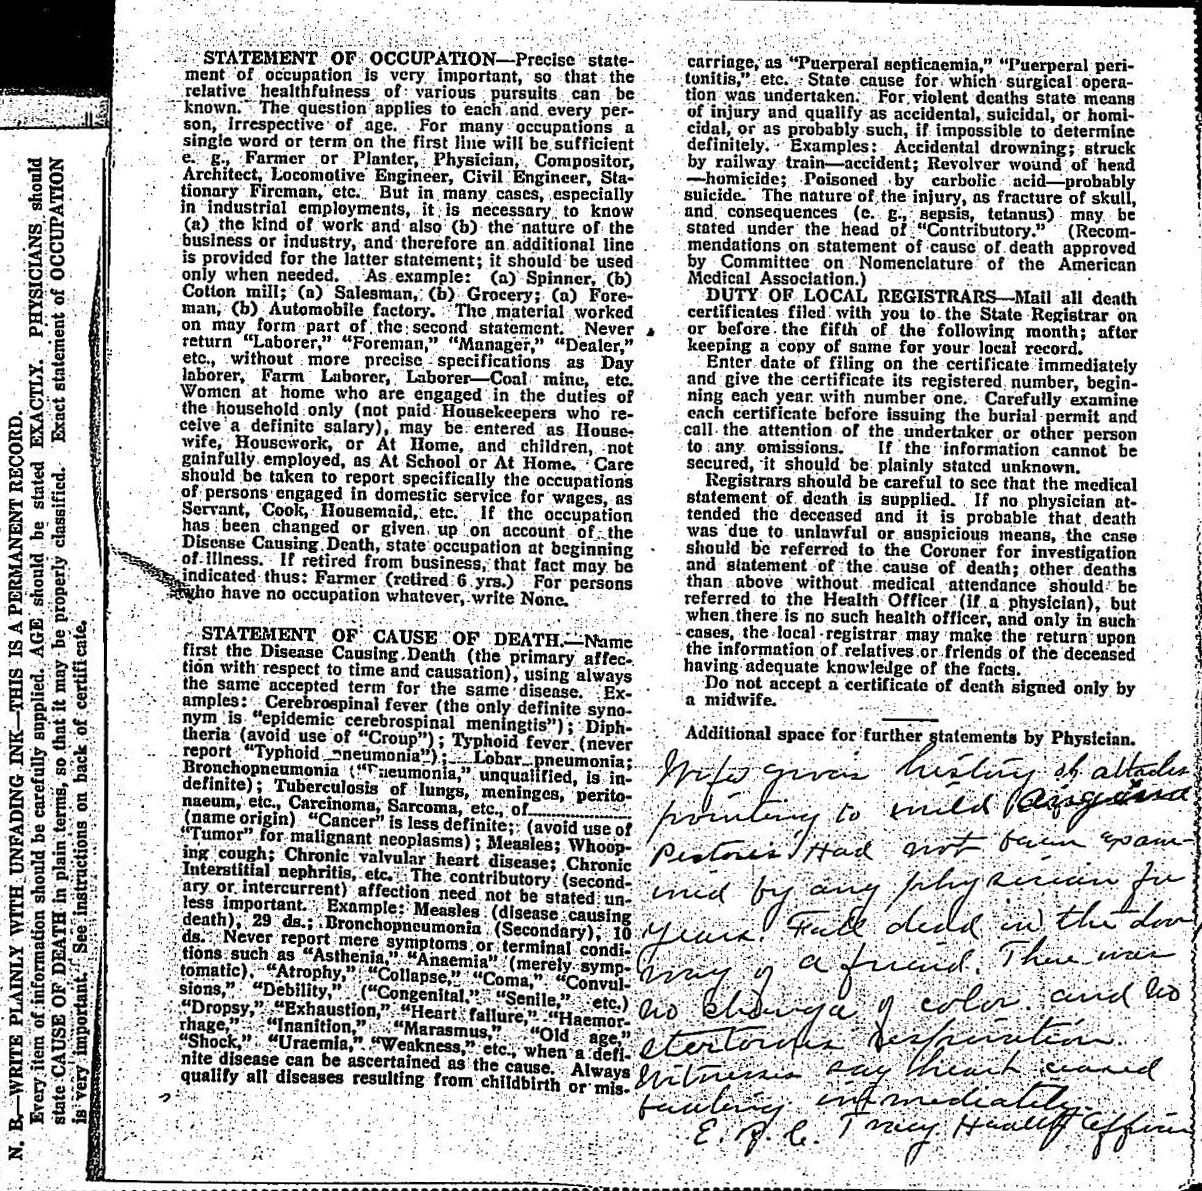 N. B.—WRITE PLAINLY WITH UNFADING INK—THIS IS A PERMANENT RECORD.
Every item of information should be carefully supplied. AGE should be stated EXACTLY. PHYSICIANS should
state CAUSE OF DEATH in plain terms, so that it may be properly classified. Exact statement of OCCUPATION
is very important. See instructions on back of certificate.
STATEMENT OF OCCUPATION—Precise state-
ment of occupation is very important, so that the
relative healthfulness of various pursuits can be
known. The question applies to each and every per-
son, irrespective of age. For many occupations a
single word or term on the first line will be sufficient
e. g., Farmer or Planter, Physician, Compositor,
Architect, Locomotive Engineer, Civil Engineer, Sta-
tionary Fireman, etc. But in many cases, especially
in industrial employments, it is necessary to know
(a) the kind of work and also (b) the nature of the
business or industry, and therefore an additional line
is provided for the latter statement; it should be used
only when needed. As example: (a) Spinner, (b)
Cotton mill; (a) Salesman, (b) Grocery; (a) Fore-
man, (b) Automobile factory. The material worked
on may form part of the second statement. Never
return "Laborer," "Foreman," "Manager," "Dealer,"
etc., without more precise specifications as Day
laborer, Farm Laborer, Laborer—Coal mine, etc.
Women at home who are engaged in the duties of
the household only (not paid Housekeepers who re-
ceive a definite salary), may be entered as House-
wife, Housework, or At Home, and children, not
gainfully employed, as At School or At Home. Care
should be taken to report specifically the occupations
of persons engaged in domestic service for wages, as
Servant, Cook, Housemaid, etc. If the occupation
has been changed or given up on account of the
Disease Causing Death, state occupation at beginning
of illness. If retired from business, that fact may be
indicated thus: Farmer (retired 6 yrs.) For persons
who have no occupation whatever, write None.
STATEMENT OF CAUSE OF DEATH.—Name
first the Disease Causing Death (the primary affec-
tion with respect to time and causation), using always
the same accepted term for the same disease. Ex-
amples: Cerebrospinal fever (the only definite syno-
nym is "epidemic cerebrospinal meningtis"); Diph-
theria (avoid use of "Croup"); Typhoid fever (never
report "Typhoid pneumonia"); Lobar pneumonia;
Bronchopneumonia ("Pneumonia," unqualified, is in-
definite); Tuberculosis of lungs, meninges, perito-
naeum, etc., Carcinoma, Sarcoma, etc., of................
(name origin) "Cancer" is less definite; (avoid use of
"Tumor" for malignant neoplasms); Measles; Whoop-
ing cough; Chronic valvular heart disease; Chronic
Interstitial nephritis, etc. The contributory (second-
ary or intercurrent) affection need not be stated un-
less important. Example: Measles (disease causing
death), 29 ds.; Bronchopneumonia (Secondary), 10
ds. Never report mere symptoms or terminal condi-
tions such as "Asthenia," "Anaemia" (merely symp-
tomatic), "Atrophy," "Collapse," "Coma," "Convul-
sions," "Debility," ("Congenital," "Senile," etc.)
"Dropsy," "Exhaustion," "Heart failure," "Haemor-
rhage," "Inanition," "Marasmus," "Old age,"
"Shock," "Uraemia," "Weakness," etc., when a defi-
nite disease can be ascertained as the cause. Always
qualify all diseases resulting from childbirth or mis-
carriage, as "Puerperal septicaemia," "Puerperal peri-
tonitis," etc. State cause for which surgical opera-
tion was undertaken. For violent deaths state means
of injury and qualify as accidental, suicidal, or homi-
cidal, or as probably such, if impossible to determine
definitely. Examples: Accidental drowning; struck
by railway train—accident; Revolver wound of head
—homicide; Poisoned by carbolic acid—probably
suicide. The nature of the injury, as fracture of skull,
and consequences (e. g., sepsis, tetanus) may be
stated under the head of "Contributory." (Recom-
mendations on statement of cause of death approved
by Committee on Nomenclature of the American
Medical Association.)
DUTY OF LOCAL REGISTRARS—Mail all death
certificates filed with you to the State Registrar on
or before the fifth of the following month; after
keeping a copy of same for your local record.
Enter date of filing on the certificate immediately
and give the certificate its registered number, begin-
ning each year with number one. Carefully examine
each certificate before issuing the burial permit and
call the attention of the undertaker or other person
to any omissions. If the information cannot be
secured, it should be plainly stated unknown.
Registrars should be careful to see that the medical
statement of death is supplied. If no physician at-
tended the deceased and it is probable that death
was due to unlawful or suspicious means, the case
should be referred to the Coroner for investigation
and statement of the cause of death; other deaths
than above without medical attendance should be
referred to the Health Officer (if a physician), but
when there is no such health officer, and only in such
cases, the local registrar may make the return upon
the information of relatives or friends of the deceased
having adequate knowledge of the facts.
Do not accept a certificate of death signed only by
a midwife.
Additional space for further statements by Physician.
Wife gives history of attacks
pointing to mild Angina
Pectoris. Had not been exam-
ined by any physician for
years. Fell dead in the door
way of a friend. There was
no change of color and no
stertorous respiration.
Witnesses say heart ceased
beating immediately.
E. J. C. Tracy Health Officer